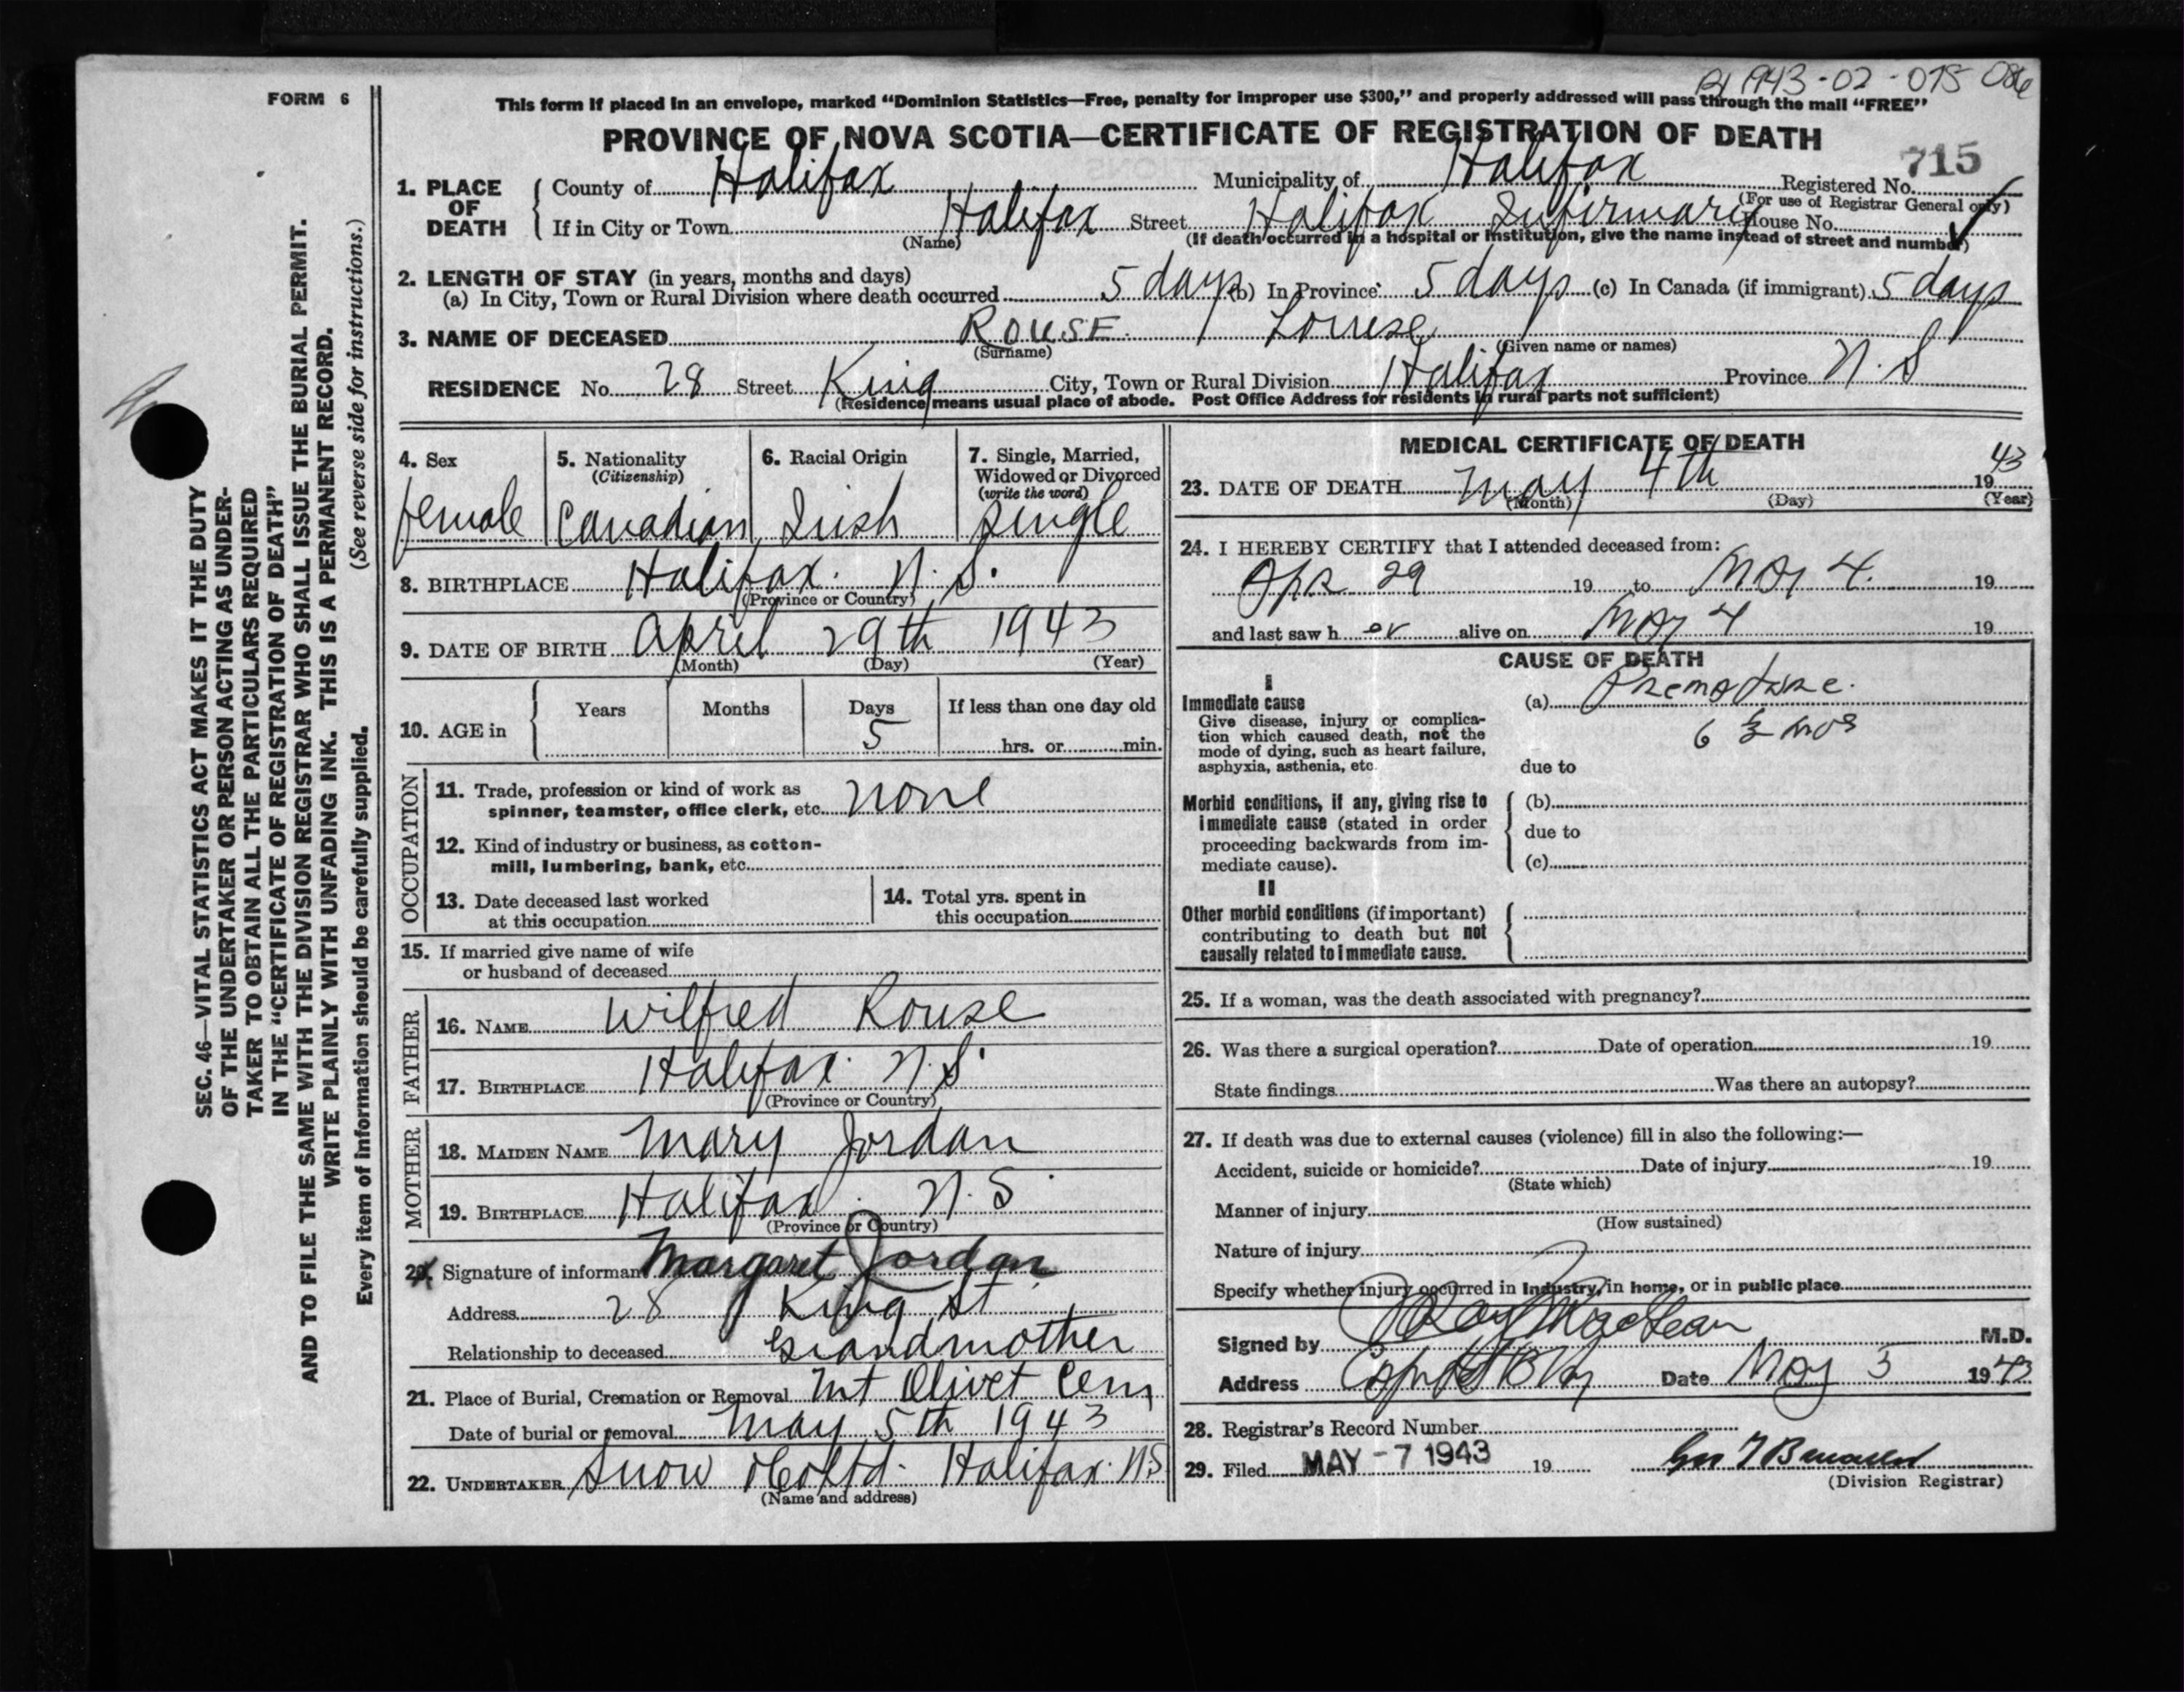 1943-02-075 086
FORM 6
This form if placed in an envelope, marked “Dominion Statistics—Free, penalty for improper use $300,” and properly addressed will pass through the mail “FREE”
PROVINCE OF NOVA SCOTIA—CERTIFICATE OF REGISTRATION OF DEATH
715
1. PLACE OF DEATH { County of Halifax Municipality of Halifax Registered No.
(For use of Registrar General only)
If in City or Town Halifax Street Halifax Infirmary House No.
(Name) (If death occurred in a hospital or institution, give the name instead of street and number)
2. LENGTH OF STAY (in years, months and days)
(a) In City, Town or Rural Division where death occurred 5 days (b) In Province 5 days (c) In Canada (if immigrant) 5 days
3. NAME OF DECEASED ROUSE Louise
(Surname) (Given name or names)
RESIDENCE No. 28 Street King City, Town or Rural Division Halifax Province N.S
(Residence means usual place of abode. Post Office Address for residents in rural parts not sufficient)
4. Sex female
5. Nationality (Citizenship) Canadian
6. Racial Origin Irish
7. Single, Married, Widowed or Divorced (write the word) single
8. BIRTHPLACE Halifax. N.S.
(Province or Country)
9. DATE OF BIRTH April 29th 1943
(Month) (Day) (Year)
10. AGE in { Years Months Days If less than one day old
5 hrs. or min.
OCCUPATION
11. Trade, profession or kind of work as
spinner, teamster, office clerk, etc. none
12. Kind of industry or business, as cotton-
mill, lumbering, bank, etc.
13. Date deceased last worked
at this occupation
14. Total yrs. spent in
this occupation
15. If married give name of wife
or husband of deceased
FATHER
16. NAME Wilfred Rouse
17. BIRTHPLACE Halifax. N.S.
(Province or Country)
MOTHER
18. MAIDEN NAME Mary Jordan
19. BIRTHPLACE Halifax. N.S.
(Province or Country)
20. Signature of informant Margaret Jordan
Address 28 King St
Relationship to deceased Grandmother
21. Place of Burial, Cremation or Removal Mt Olivet Cem
Date of burial or removal May 5th 1943
22. UNDERTAKER Snow & Co Ltd. Halifax. N.S
(Name and address)
MEDICAL CERTIFICATE OF DEATH
23. DATE OF DEATH May 4th 1943
(Month) (Day) (Year)
24. I HEREBY CERTIFY that I attended deceased from:
Apr 29 19 to May 4. 19
and last saw h er alive on May 4 19
CAUSE OF DEATH
I
Immediate cause (a) Premature.
Give disease, injury or complica-
tion which caused death, not the
mode of dying, such as heart failure,
asphyxia, asthenia, etc.
6 ½ mos
due to
Morbid conditions, if any, giving rise to
immediate cause (stated in order
proceeding backwards from im-
mediate cause).
(b)
due to
(c)
II
Other morbid conditions (if important)
contributing to death but not
causally related to immediate cause.
25. If a woman, was the death associated with pregnancy?
26. Was there a surgical operation? Date of operation 19
State findings Was there an autopsy?
27. If death was due to external causes (violence) fill in also the following:—
Accident, suicide or homicide? Date of injury 19
(State which)
Manner of injury
(How sustained)
Nature of injury
Specify whether injury occurred in Industry, in home, or in public place
Signed by MacLean M.D.
Address Date May 5 1943
28. Registrar's Record Number
29. Filed MAY -7 1943 19
(Division Registrar)
SEC. 46—VITAL STATISTICS ACT MAKES IT THE DUTY
OF THE UNDERTAKER OR PERSON ACTING AS UNDER-
TAKER TO OBTAIN ALL THE PARTICULARS REQUIRED
IN THE “CERTIFICATE OF REGISTRATION OF DEATH”
AND TO FILE THE SAME WITH THE DIVISION REGISTRAR WHO SHALL ISSUE THE BURIAL PERMIT.
WRITE PLAINLY WITH UNFADING INK. THIS IS A PERMANENT RECORD.
Every item of information should be carefully supplied. (See reverse side for instructions.)